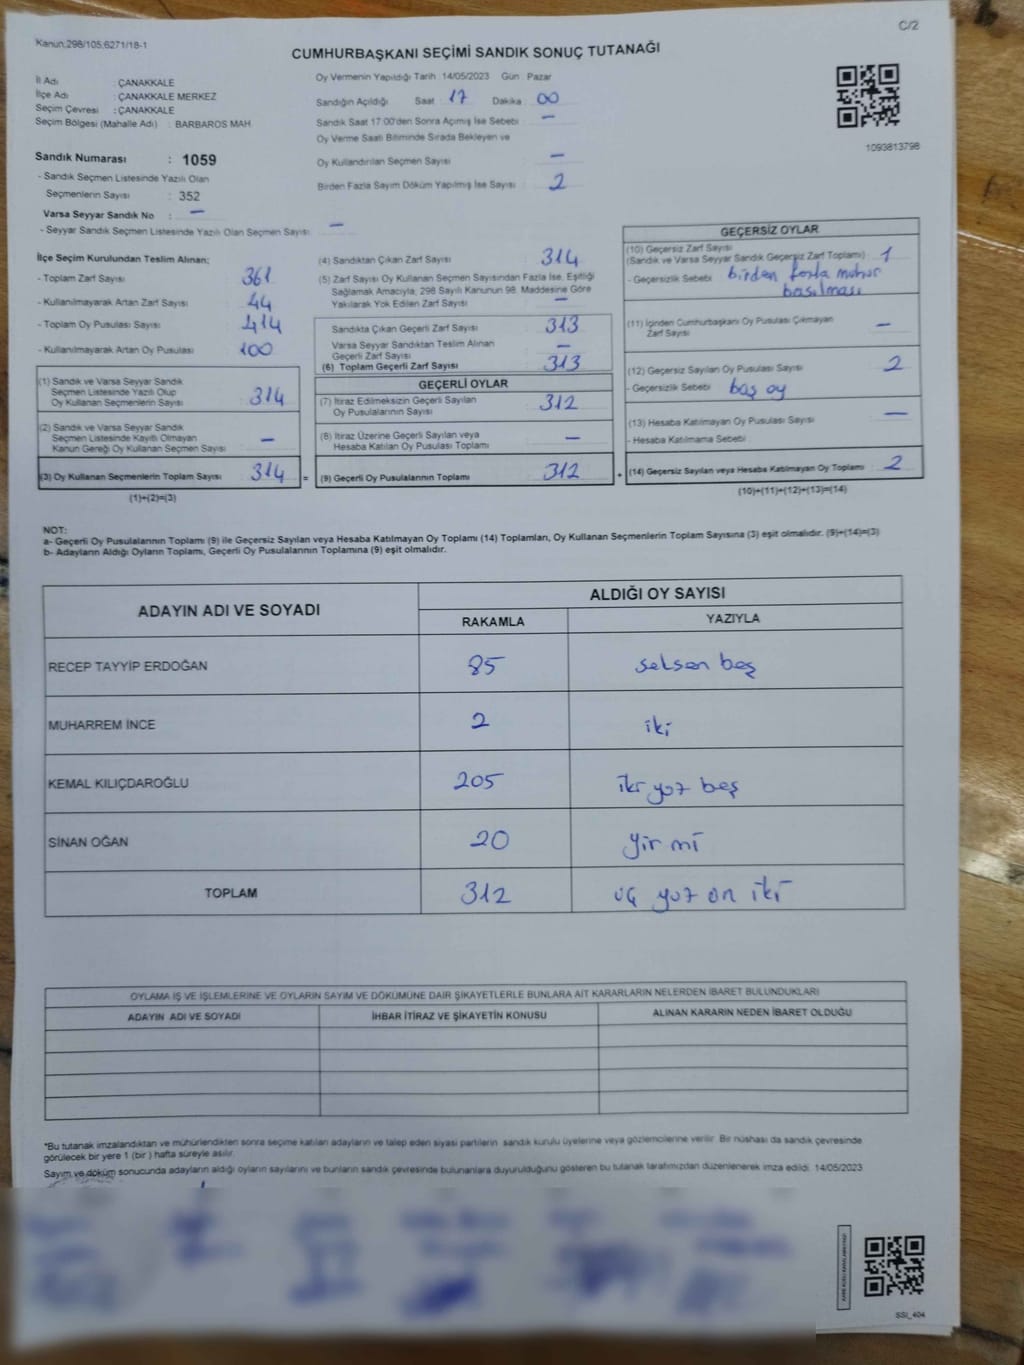 C/2
Kanun.298/105,6271/18-1
CUMHURBAŞKANI SEÇİMİ SANDIK SONUÇ TUTANAĞI
İl Adı : ÇANAKKALE
İlçe Adı : ÇANAKKALE MERKEZ
Seçim Çevresi : ÇANAKKALE
Seçim Bölgesi (Mahalle Adı) : BARBAROS MAH.
Oy Vermenin Yapıldığı Tarih :14/05/2023 Gün Pazar
Sandığın Açıldığı Saat 17 Dakika 00
Sandık Saat 17:00'den Sonra Açılmış İse Sebebi : –
Oy Verme Saati Bitiminde Sırada Bekleyen ve
Oy Kullandırılan Seçmen Sayısı –
Birden Fazla Sayım Döküm Yapılmış İse Sayısı : 2
1093813798
Sandık Numarası : 1059
- Sandık Seçmen Listesinde Yazılı Olan
Seçmenlerin Sayısı : 352
Varsa Seyyar Sandık No : –
- Seyyar Sandık Seçmen Listesinde Yazılı Olan Seçmen Sayısı : –
İlçe Seçim Kurulundan Teslim Alınan:
- Toplam Zarf Sayısı 361
- Kullanılmayarak Artan Zarf Sayısı : 44
- Toplam Oy Pusulası Sayısı 414
- Kullanılmayarak Artan Oy Pusulası 100
(1) Sandık ve Varsa Seyyar Sandık
Seçmen Listesinde Yazılı Olup
Oy Kullanan Seçmenlerin Sayısı : 314
(2) Sandık ve Varsa Seyyar Sandık
Seçmen Listesinde Kayıtlı Olmayan
Kanun Gereği Oy Kullanan Seçmen Sayısı –
(3) Oy Kullanan Seçmenlerin Toplam Sayısı : 314 =
(1)+(2)=(3)
(4) Sandıktan Çıkan Zarf Sayısı : 314
(5) Zarf Sayısı Oy Kullanan Seçmen Sayısından Fazla İse, Eşitliği
Sağlamak Amacıyla, 298 Sayılı Kanunun 98. Maddesine Göre
Yakılarak Yok Edilen Zarf Sayısı : –
Sandıkta Çıkan Geçerli Zarf Sayısı : 313
Varsa Seyyar Sandıktan Teslim Alınan
Geçerli Zarf Sayısı : –
(6) Toplam Geçerli Zarf Sayısı : 313
GEÇERLİ OYLAR
(7) İtiraz Edilmeksizin Geçerli Sayılan
Oy Pusulalarının Sayısı : 312
(8) İtiraz Üzerine Geçerli Sayılan veya
Hesaba Katılan Oy Pusulası Toplamı : –
(9) Geçerli Oy Pusulalarının Toplamı : 312 +
GEÇERSİZ OYLAR
(10) Geçersiz Zarf Sayısı
(Sandık ve Varsa Seyyar Sandık Geçersiz Zarf Toplamı) : 1
- Geçersizlik Sebebi : birden fazla mühür
basılması
(11) İçinden Cumhurbaşkanı Oy Pusulası Çıkmayan
Zarf Sayısı : –
(12) Geçersiz Sayılan Oy Pusulası Sayısı : 2
- Geçersizlik Sebebi : boş oy
(13) Hesaba Katılmayan Oy Pusulası Sayısı : –
- Hesaba Katılmama Sebebi :
(14) Geçersiz Sayılan veya Hesaba Katılmayan Oy Toplamı : 2
(10)+(11)+(12)+(13)=(14)
NOT:
a- Geçerli Oy Pusulalarının Toplamı (9) ile Geçersiz Sayılan veya Hesaba Katılmayan Oy Toplamı (14) Toplamları, Oy Kullanan Seçmenlerin Toplam Sayısına (3) eşit olmalıdır. (9)+(14)=(3)
b- Adayların Aldığı Oyların Toplamı, Geçerli Oy Pusulalarının Toplamına (9) eşit olmalıdır.
ADAYIN ADI VE SOYADI ALDIĞI OY SAYISI
RAKAMLA YAZIYLA
RECEP TAYYİP ERDOĞAN 85 seksen beş
MUHARREM İNCE 2 iki
KEMAL KILIÇDAROĞLU 205 iki yüz beş
SİNAN OĞAN 20 yirmi
TOPLAM 312 üç yüz on iki
OYLAMA İŞ VE İŞLEMLERİNE VE OYLARIN SAYIM VE DÖKÜMÜNE DAİR ŞİKAYETLERLE BUNLARA AİT KARARLARIN NELERDEN İBARET BULUNDUKLARI
ADAYIN ADI VE SOYADI İHBAR İTİRAZ VE ŞİKAYETİN KONUSU ALINAN KARARIN NEDEN İBARET OLDUĞU
*Bu tutanak imzalandıktan ve mühürlendikten sonra seçime katılan adayların ve talep eden siyasi partilerin sandık kurulu üyelerine veya gözlemcilerine verilir. Bir nüshası da sandık çevresinde
görülecek bir yere 1 (bir ) hafta süreyle asılır.
Sayım ve döküm sonucunda adayların aldığı oyların sayılarını ve bunların sandık çevresinde bulunanlara duyurulduğunu gösteren bu tutanak tarafımızdan düzenlenerek imza edildi. 14/05/2023
SSİ_404